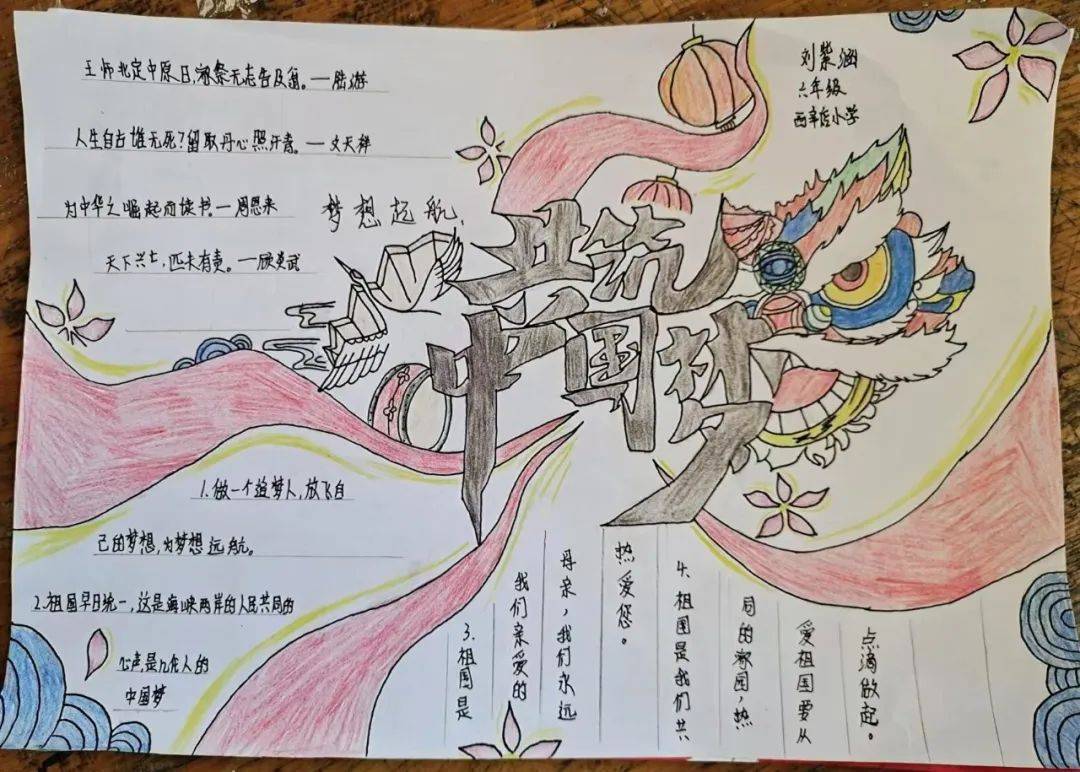 王师北定中原日,家祭无忘告及翁。—陆游
人生自古谁无死?留取丹心照汗青。—文天祥
为中华之崛起而读书。—周恩来
天下兴亡,匹夫有责。—顾炎武
梦想起航
刘紫涵
六年级
西辛店小学
共筑
中国梦
1.做一个追梦人,放飞自
己的梦想,为梦想远航。
2.祖国早日统一,这是海峡两岸的人民共同的
心声,是九亿人的
中国梦
3.祖国是
我们亲爱的
母亲,我们永远
热爱您。
4.祖国是我们共
同的家园,热
爱祖国要从
点滴做起。